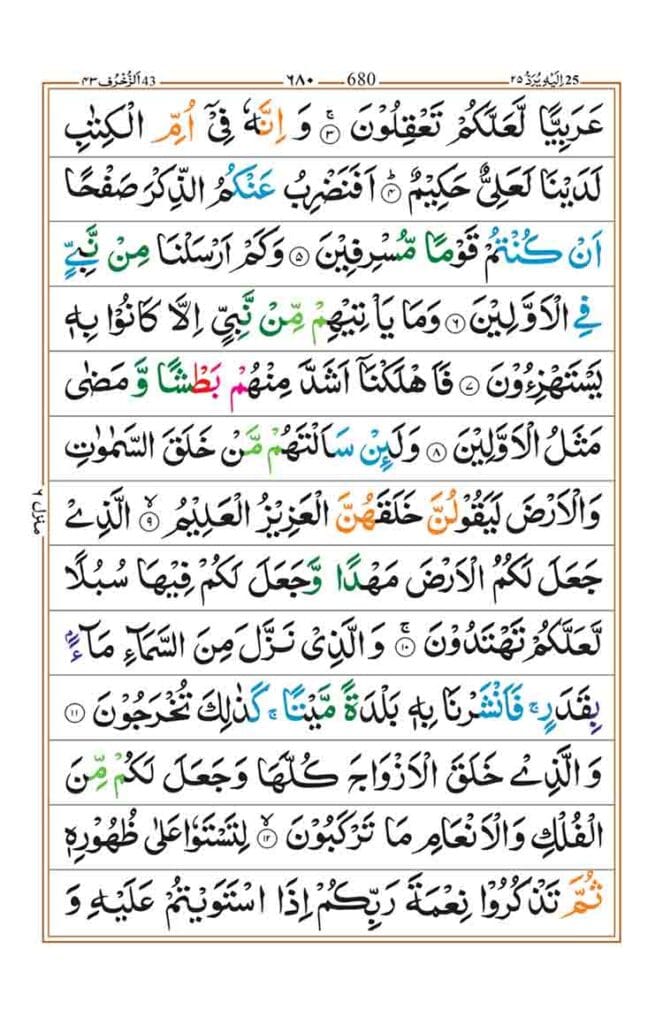 اِلَيْهِ يُرَدُّ ٢٥ 25 680 ٦٨٠ 43 اَلزُّخْرُف ٤٣
عَرَبِيًّا لَّعَلَّكُمْ تَعْقِلُوْنَ ۚ‏ ٣ وَ اِنَّهٗ فِىْۤ اُمِّ الْكِتٰبِ
لَدَيْنَا لَعَلِىٌّ حَكِيْمٌ ؕ‏ ٤ اَفَنَضْرِبُ عَنْكُمُ الذِّكْرَ صَفْحًا
اَنْ كُنْتُمْ قَوْمًا مُّسْرِفِيْنَ ٥ وَكَمْ اَرْسَلْنَا مِنْ نَّبِىٍّ
فِى الْاَوَّلِيْنَ ٦ وَمَا يَاْتِيْهِمْ مِّنْ نَّبِىٍّ اِلَّا كَانُوْا بِهٖ
يَسْتَهْزِءُوْنَ ٧ فَاَهْلَكْنَاۤ اَشَدَّ مِنْهُمْ بَطْشًا وَّ مَضٰى
مَثَلُ الْاَوَّلِيْنَ ٨ وَلَئِنْ سَاَلْتَهُمْ مَّنْ خَلَقَ السَّمٰوٰتِ
وَالْاَرْضَ لَيَقُوْلُنَّ خَلَقَهُنَّ الْعَزِيْزُ الْعَلِيْمُ ۙ‏ ٩ الَّذِىْ
جَعَلَ لَكُمُ الْاَرْضَ مَهْدًا وَّجَعَلَ لَكُمْ فِيْهَا سُبُلًا
لَّعَلَّكُمْ تَهْتَدُوْنَ ۚ‏ ١٠ وَالَّذِىْ نَزَّلَ مِنَ السَّمَآءِ مَآءًۢ
بِقَدَرٍ ۚ فَاَنْشَرْنَا بِهٖ بَلْدَةً مَّيْتًا ۚ كَذٰلِكَ تُخْرَجُوْنَ ١١
وَالَّذِىْ خَلَقَ الْاَزْوَاجَ كُلَّهَا وَجَعَلَ لَكُمْ مِّنَ
الْفُلْكِ وَالْاَنْعَامِ مَا تَرْكَبُوْنَ ۙ‏ ١٢ لِتَسْتَوٗا عَلٰى ظُهُوْرِهٖ
ثُمَّ تَذْكُرُوْا نِعْمَةَ رَبِّكُمْ اِذَا اسْتَوَيْتُمْ عَلَيْهِ وَ
منزل ٦